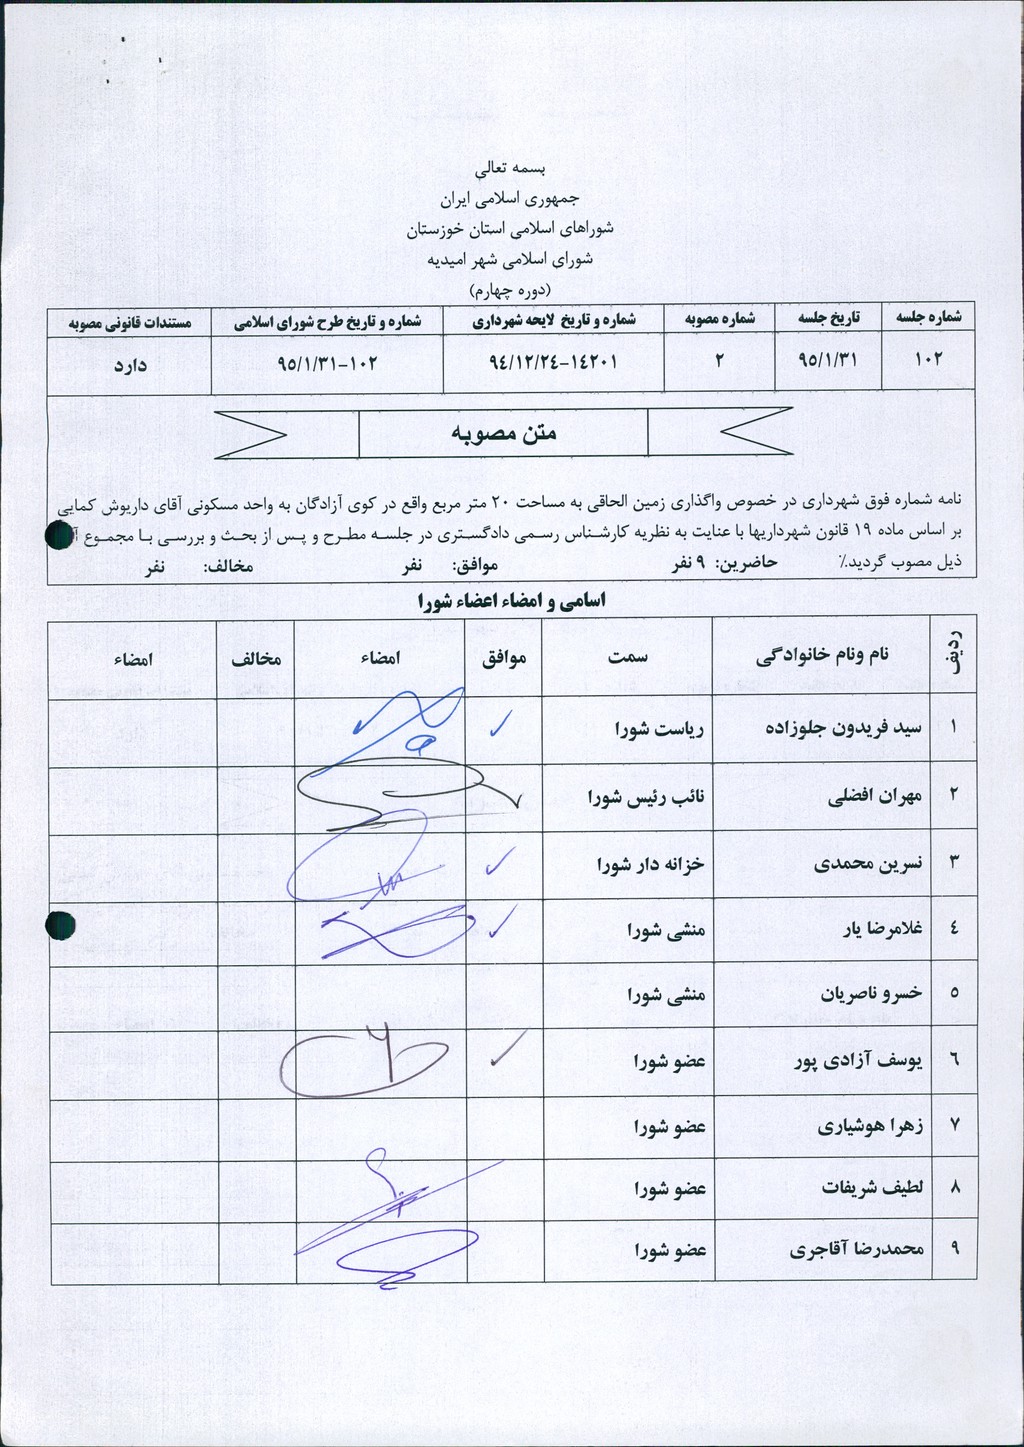 بسمه تعالي
جمهوری اسلامی ایران
شوراهای اسلامی استان خوزستان
شورای اسلامی شهر امیدیه
(دوره چهارم)
شماره جلسه تاریخ جلسه شماره مصوبه شماره و تاریخ لایحه شهرداری شماره و تاریخ طرح شورای اسلامی مستندات قانونی مصوبه
۱۰۲ ۹۵/۱/۳۱ ۲ ۹٤/۱۲/۲٤-۱٤۲۰۱ ۹۵/۱/۳۱-۱۰۲ دارد
متن مصوبه
نامه شماره فوق شهرداری در خصوص واگذاری زمین الحاقی به مساحت ۲۰ متر مربع واقع در کوی آزادگان به واحد مسکونی آقای داریوش کمایی
بر اساس ماده ۱۹ قانون شهرداریها با عنایت به نظریه کارشناس رسمی دادگستری در جلسه مطرح و پس از بحث و بررسی با مجموع
ذیل مصوب گردید.٪ حاضرین: ۹ نفر موافق: نفر مخالف: نفر
اسامی و امضاء اعضاء شورا
ردیف نام ونام خانوادگی سمت موافق امضاء مخالف امضاء
۱ سید فریدون جلوزاده ریاست شورا ✓
۲ مهران افضلی نائب رئیس شورا ✓
۳ نسرین محمدی خزانه دار شورا ✓
٤ غلامرضا یار منشی شورا ✓
۵ خسرو ناصریان منشی شورا
٦ یوسف آزادی پور عضو شورا ✓
۷ زهرا هوشیاری عضو شورا
۸ لطیف شریفات عضو شورا
۹ محمدرضا آقاجری عضو شورا